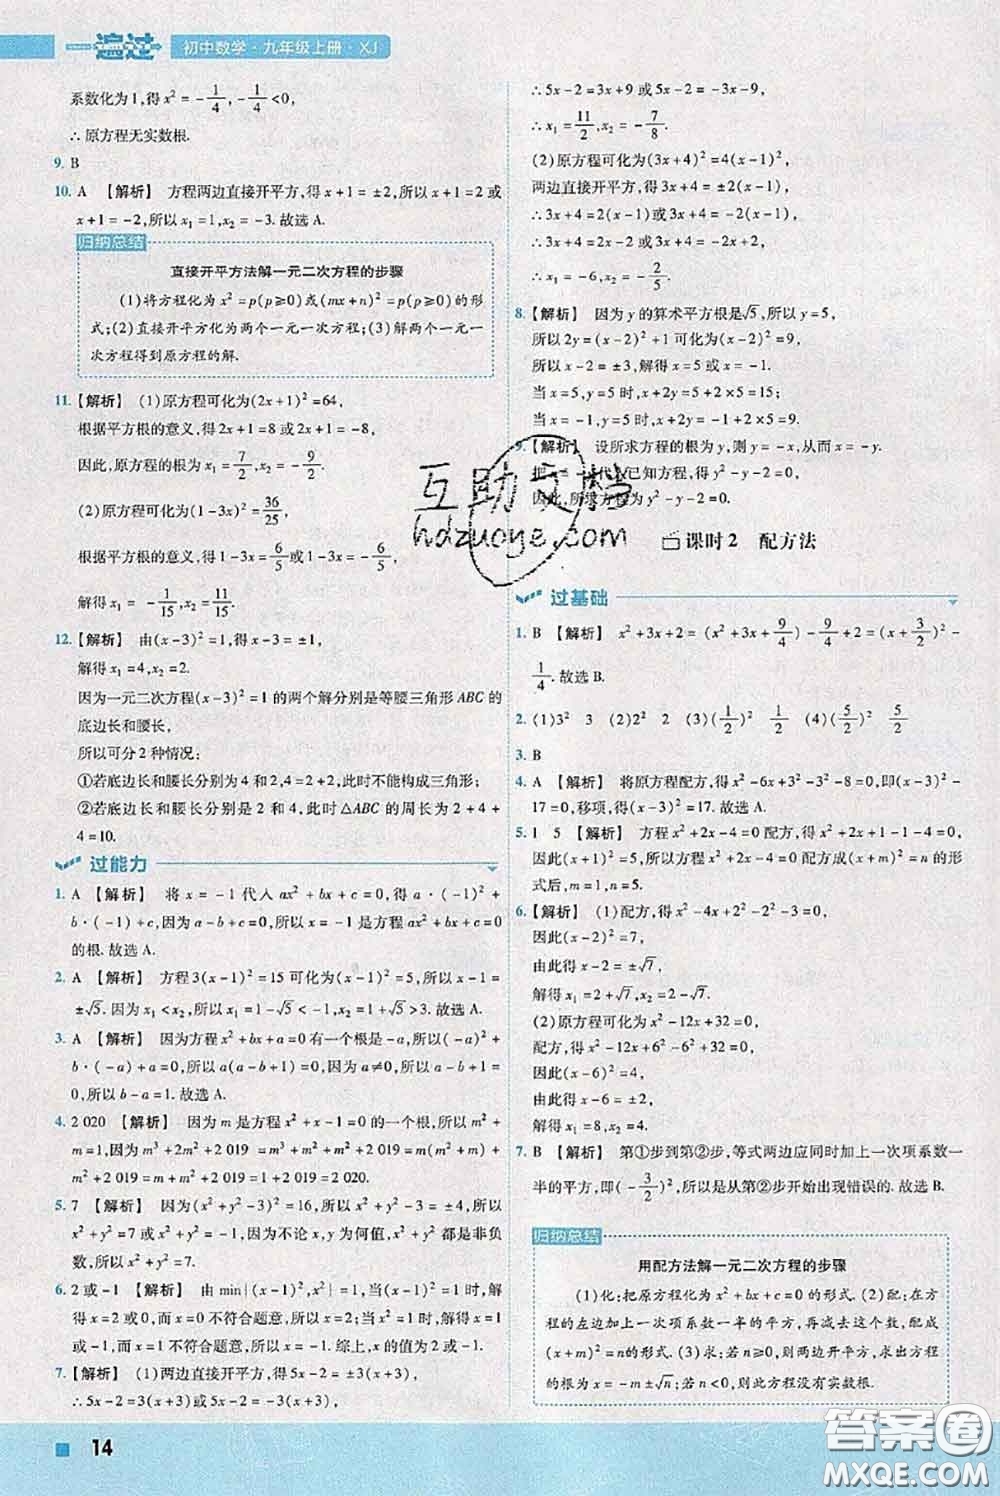 一遍过 初中数学·九年级上册·XJ
系数化为1,得x²=-1/4,-1/4<0,
∴原方程无实数根.
9. B
10. A 【解析】 方程两边直接开平方,得x+1=±2,所以x+1=2或
x+1=-2,所以x₁=1,x₂=-3.故选A.
归纳总结
直接开平方法解一元二次方程的步骤
(1)将方程化为x²=p(p≥0)或(mx+n)²=p(p≥0)的形
式;(2)直接开平方化为两个一元一次方程;(3)解两个一元一
次方程得到原方程的解.
11.【解析】 (1)原方程可化为(2x+1)²=64,
根据平方根的意义,得2x+1=8或2x+1=-8,
因此,原方程的根为x₁=7/2,x₂=-9/2.
(2)原方程可化为(1-3x)²=36/25,
根据平方根的意义,得1-3x=6/5或1-3x=-6/5,
解得x₁=-1/15,x₂=11/15.
12.【解析】 由(x-3)²=1,得x-3=±1,
解得x₁=4,x₂=2.
因为一元二次方程(x-3)²=1的两个解分别是等腰三角形ABC的
底边长和腰长,
所以可分2种情况:
①若底边长和腰长分别为4和2,4=2+2,此时不能构成三角形;
②若底边长和腰长分别是2和4,此时△ABC的周长为2+4+
4=10.
过能力
1. A 【解析】 将x=-1代入ax²+bx+c=0,得a·(-1)²+
b·(-1)+c=0,因为a-b+c=0,所以x=-1是方程ax²+bx+c=0
的根.故选A.
2. A 【解析】 方程3(x-1)²=15可化为(x-1)²=5,所以x-1=
±√5.因为x₁<x₂,所以x₁=1-√5<-1.故选A.
3. A 【解析】 因为方程x²+bx+a=0有一个根是-a,所以(-a)²+
b·(-a)+a=0,所以a(a-b+1)=0,因为a≠0,所以a-b+1=0,
所以a-b=-1.故选A.
4. 2 020 【解析】 因为m是方程x²+x-1=0的一个根,所以m²+
m=1,所以m³+2m²+2 019=m³+m²+m²+2 019=m(m²+m)+m²+
2 019=m+m²+2 019=1+2 019=2 020.
5. 7 【解析】 因为(x²+y²-3)²=16,所以x²+y²-3=±4,所以
x²+y²=7或x²+y²=-1,因为不论x,y为何值,x²+y²都是非负
数,所以x²+y²=7.
6. 2或-1 【解析】 由min{(x-1)²,x²}=1,当(x-1)²=1时,解
得x=2或x=0,而x=0不符合题意,所以x=2.当x²=1时,解得x=1
或x=-1,而x=1不符合题意,所以x=-1.综上,x的值为2或-1.
7.【解析】 (1)两边直接开平方,得5x-2=±3(x+3),
∴5x-2=3(x+3)或5x-2=-3(x+3),
∴5x-2=3x+9或5x-2=-3x-9,
∴x₁=11/2,x₂=-7/8.
(2)原方程可化为(3x+4)²=4(x-1)²,
两边直接开平方,得3x+4=±2(x-1),
∴3x+4=2(x-1)或3x+4=-2(x-1),
∴3x+4=2x-2或3x+4=-2x+2,
∴x₁=-6,x₂=-2/5.
8.【解析】 因为y的算术平方根是√5,所以y=5,
所以2y=(x-2)²+1可化为(x-2)²=9,
所以x-2=±3,解得x=5或x=-1.
当x=5,y=5时,x+2y=5+2×5=15,
当x=-1,y=5时,x+2y=-1+2×5=9.
9.【解析】 设所求方程的根为y,则y=-x,从而x=-y.
把x=-y代入已知方程,得y²-y-2=0,
因此,所求方程为y²-y-2=0.
互助文档
hdzuoye.com
课时2 配方法
过基础
1. B 【解析】 x²+3x+2=(x²+3x+9/4)-9/4+2=(x+3/2)²-
1/4.故选B.
2. (1)3² 3 (2)2² 2 (3)(1/2)² 1/2 (4)(5/2)² 5/2
3. B
4. A 【解析】 将原方程配方,得x²-6x+3²-3²-8=0,即(x-3)²-
17=0,移项,得(x-3)²=17.故选A.
5. 1 5 【解析】 方程x²+2x-4=0配方,得x²+2x+1-1-4=0,
因此(x+1)²=5,所以x²+2x-4=0配方成(x+m)²=n的形
式后,m=1,n=5.
6.【解析】 (1)配方,得x²-4x+2²-2²-3=0,
因此(x-2)²=7,
由此得x-2=±√7,
解得x₁=2+√7,x₂=2-√7.
(2)原方程可化为x²-12x+32=0,
配方,得x²-12x+6²-6²+32=0,
因此(x-6)²=4,
由此得x-6=±2,
解得x₁=8,x₂=4.
7. B 【解析】 第①步到第②步,等式两边应同时加上一次项系数一
半的平方,即(-3/2)²,所以是从第②步开始出现错误的.故选B.
归纳总结
用配方法解一元二次方程的步骤
(1)化:把原方程化为x²+bx+c=0的形式.(2)配:在方
程的左边加上一次项系数一半的平方,再减去这个数,配成
(x+m)²=n的形式.(3)求:若n≥0,两边开平方,求出方程
的根为x=-m±√n;若n<0,则原方程没有实数根.
14
答案圈
MXQE.COM